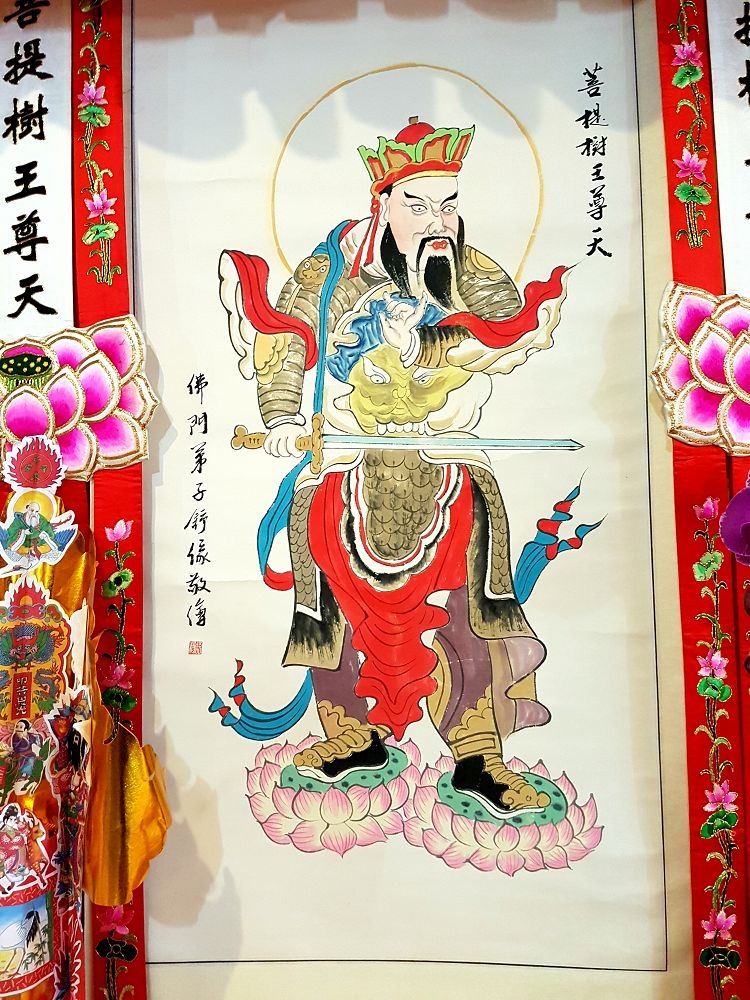 菩提樹王尊天
菩提樹王尊天
佛門弟子舒緣敬僔